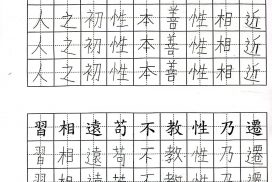 人之初性本善性相近
人之初性本善性相近
人之初性本善性相近
習相遠苟不教性乃遷
習相遠苟不教性乃遷
習相遠苟不教性乃遷